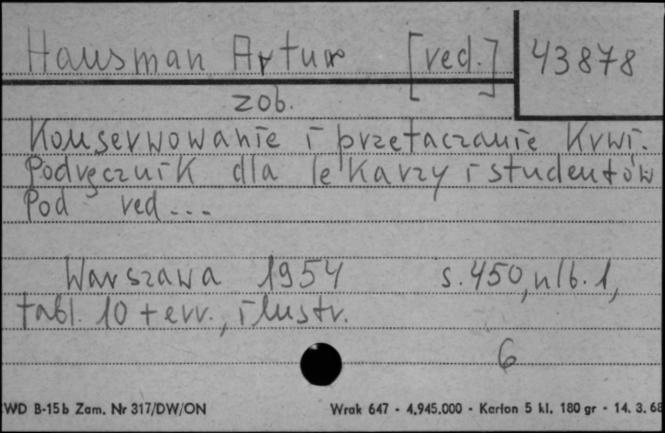 Hausman Artur [red.] 43878
zob.
Konserwowanie i przetaczanie krwi.
Podręcznik dla lekarzy i studentów
Pod red...
Warszawa 1954 s. 450, nlb. 1,
tabl. 10 + err., ilustr.
6
WD B-15b Zam. Nr 317/DW/ON Wrak 647 - 4.945.000 - Karton 5 kl. 180 gr - 14. 3. 68